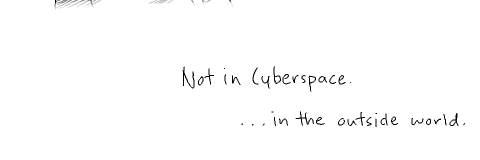 Not in Cyberspace.
...in the outside world.